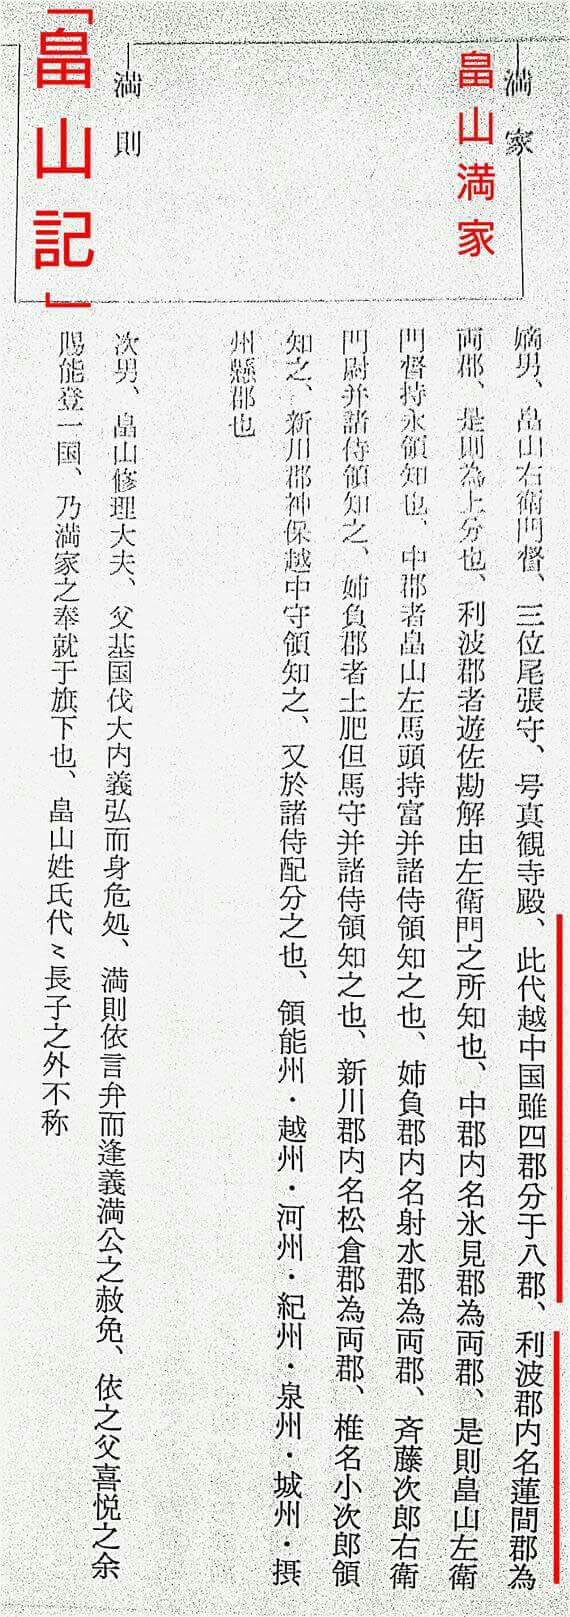 満家
畠山満家
嫡男、畠山右衛門督、三位尾張守、号真観寺殿、此代越中国雖四郡分于八郡、利波郡内名蓮間郡為
両郡、是則為上分也、利波郡者遊佐勘解由左衛門之所知也、中郡内名氷見郡為両郡、是則畠山左衛
門督持永領知也、中郡者畠山左馬頭持富并諸侍領知之也、姉負郡内名射水郡為両郡、斉藤次郎右衛
門尉并諸侍領知之、姉負郡者土肥但馬守并諸侍領知之也、新川郡内名松倉郡為両郡、椎名小次郎領
知之、新川郡神保越中守領知之、又於諸侍配分之也、領能州・越州・河州・紀州・泉州・城州・摂
州懸郡也
満則
次男、畠山修理大夫、父基国伐大内義弘而身危処、満則依言弁而逢義満公之赦免、依之父喜悦之余
賜能登一国、乃満家之奉就于旗下也、畠山姓氏代〻長子之外不称
「畠山記」